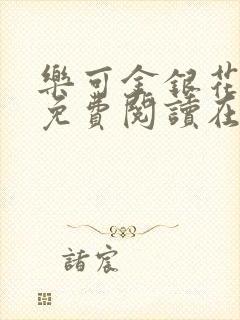 樂可金銀花
免費閱讀在
諸宸